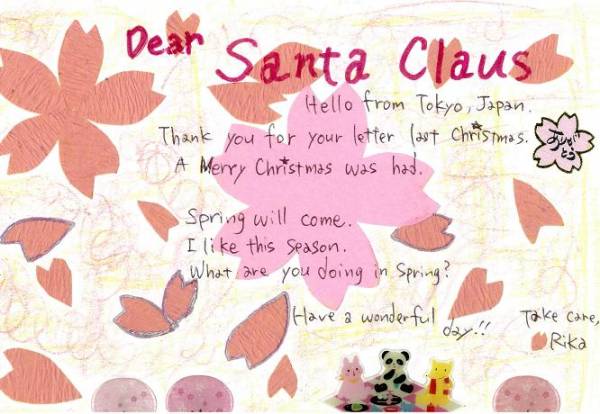 Dear Santa Claus
Hello from Tokyo, Japan.
Thank you for your letter last Christmas.
A Merry Christmas was had.
ありがとう
Spring will come.
I like this season.
What are you doing in Spring?
Have a wonderful day!!
Take care,
Rika